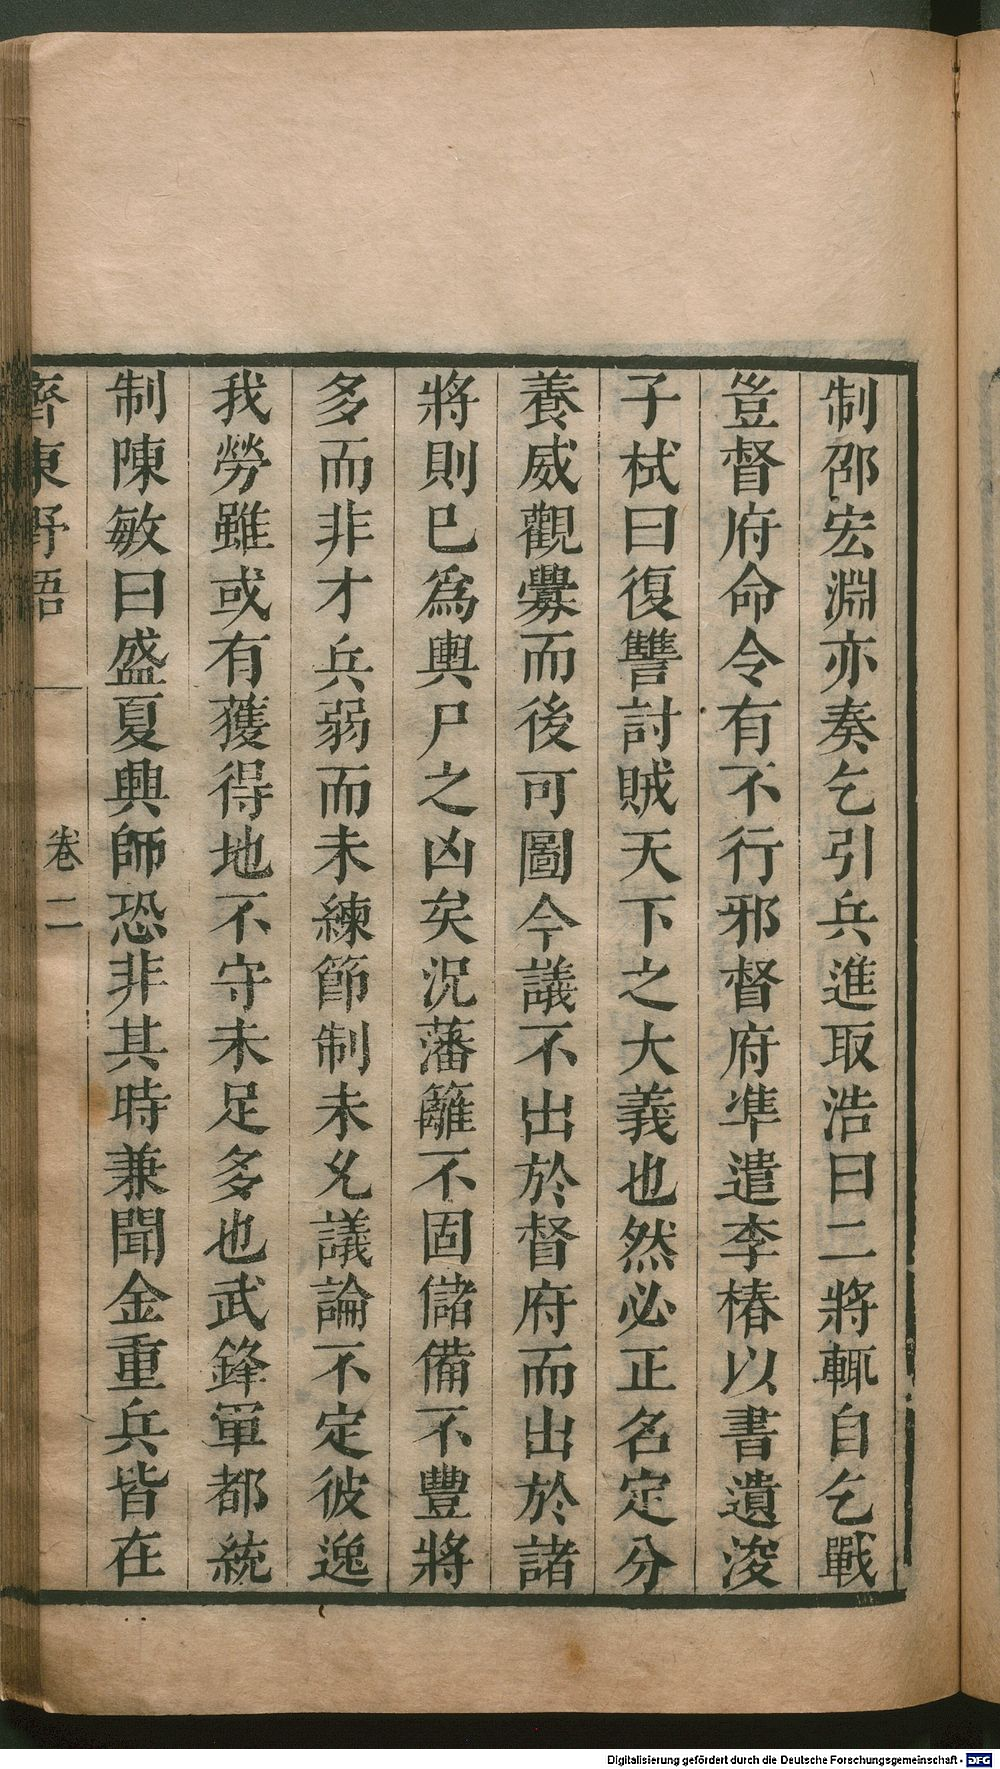 制邵宏淵亦奏乞引兵進取浩曰二將輒自乞戰
豈督府命令有不行邪督府凖遣李椿以書遺浚
子栻曰復讐討賊天下之大義也然必正名定分
養威觀釁而後可圖今議不出於督府而出於諸
將則已爲輿尸之凶矣況藩籬不固儲備不豐將
多而非才兵弱而未練節制未允議論不定彼逸
我勞雖或有獲得地不守未足多也武鋒軍都統
制陳敏曰盛夏興師恐非其時兼聞金重兵皆在
齊東野語 卷二
Digitalisierung gefördert durch die Deutsche Forschungsgemeinschaft - DFG